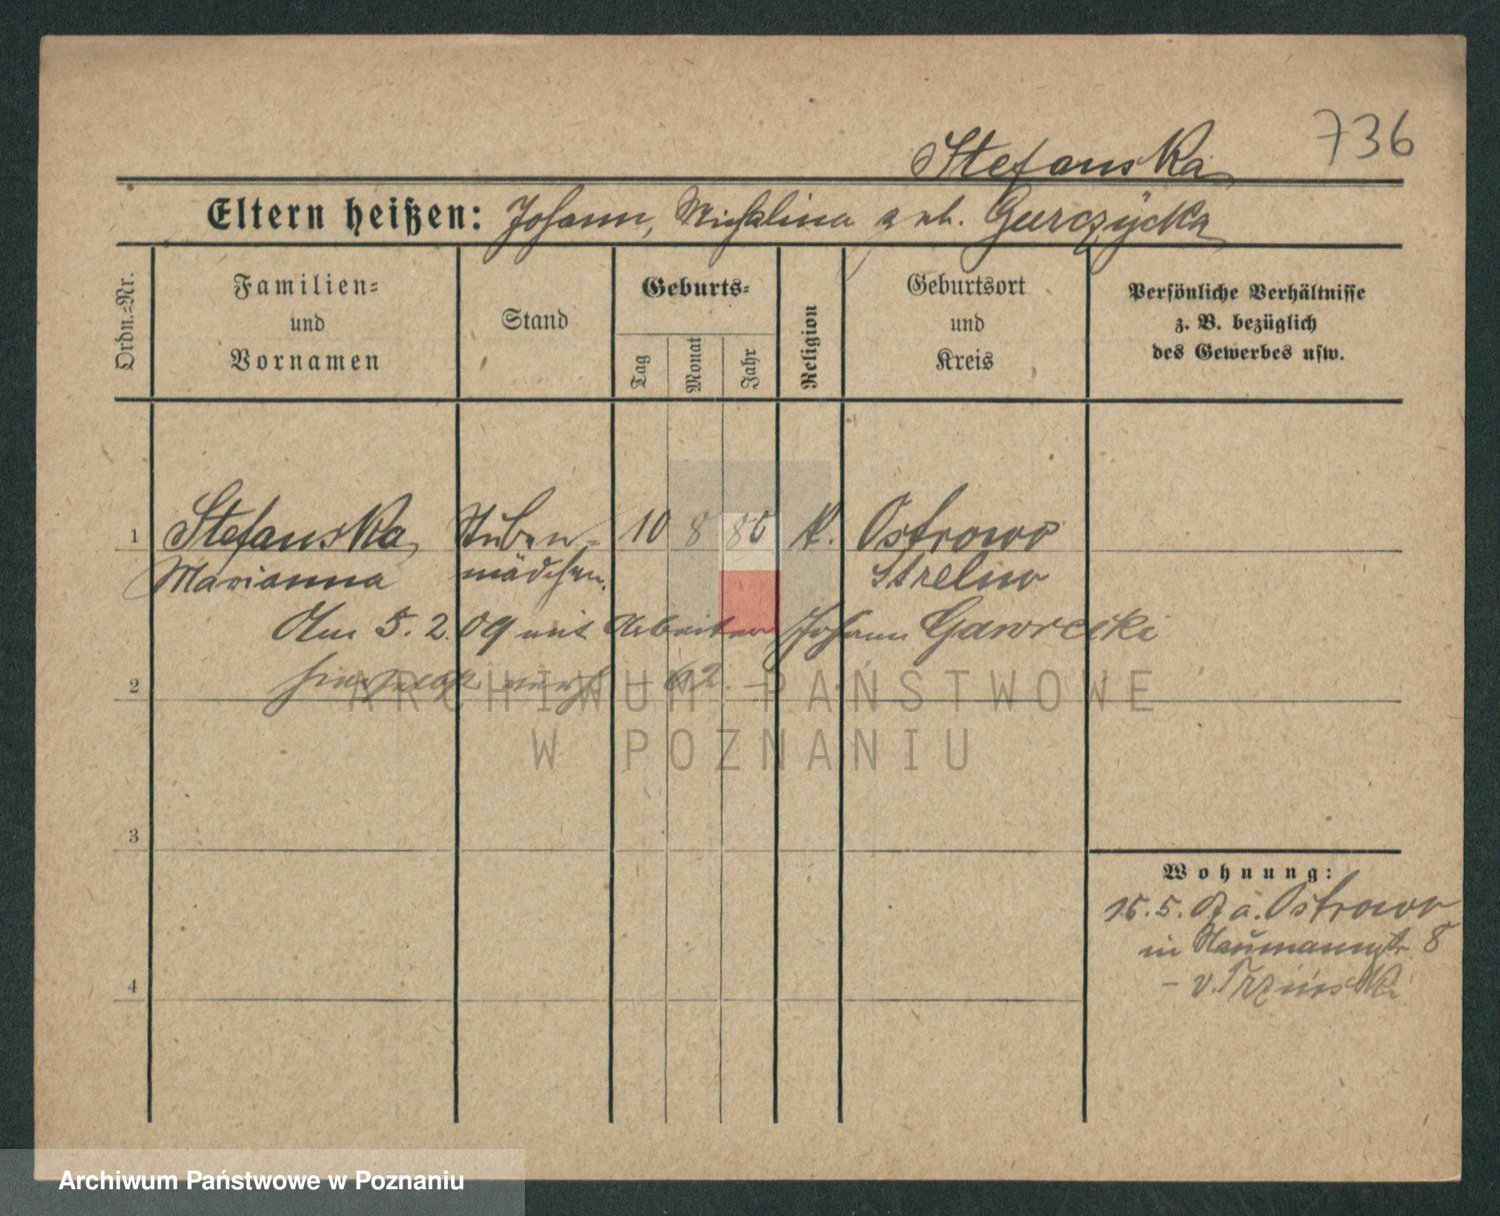 736
Stefanska
Eltern heißen: Johann, Michalina geb. Gurczycka
Ordn.-Nr.
Familien-
und
Vornamen
Stand
Geburts-
Tag
Monat
Jahr
Religion
Geburtsort
und
Kreis
Persönliche Verhältnisse
z. B. bezüglich
des Gewerbes usw.
1 Stefanska Stuben- 10 8 86 k. Ostrowo
Marianna mädchen. Strelno
Am 5.2.09 mit Arbeiter Johann Gawrecki
2 hierselbst verh.
ARCHIWUM PAŃSTWOWE
W POZNANIU
3
Wohnung:
15.5. a. Ostrowo
in Naumannstr. 8
4
Archiwum Państwowe w Poznaniu